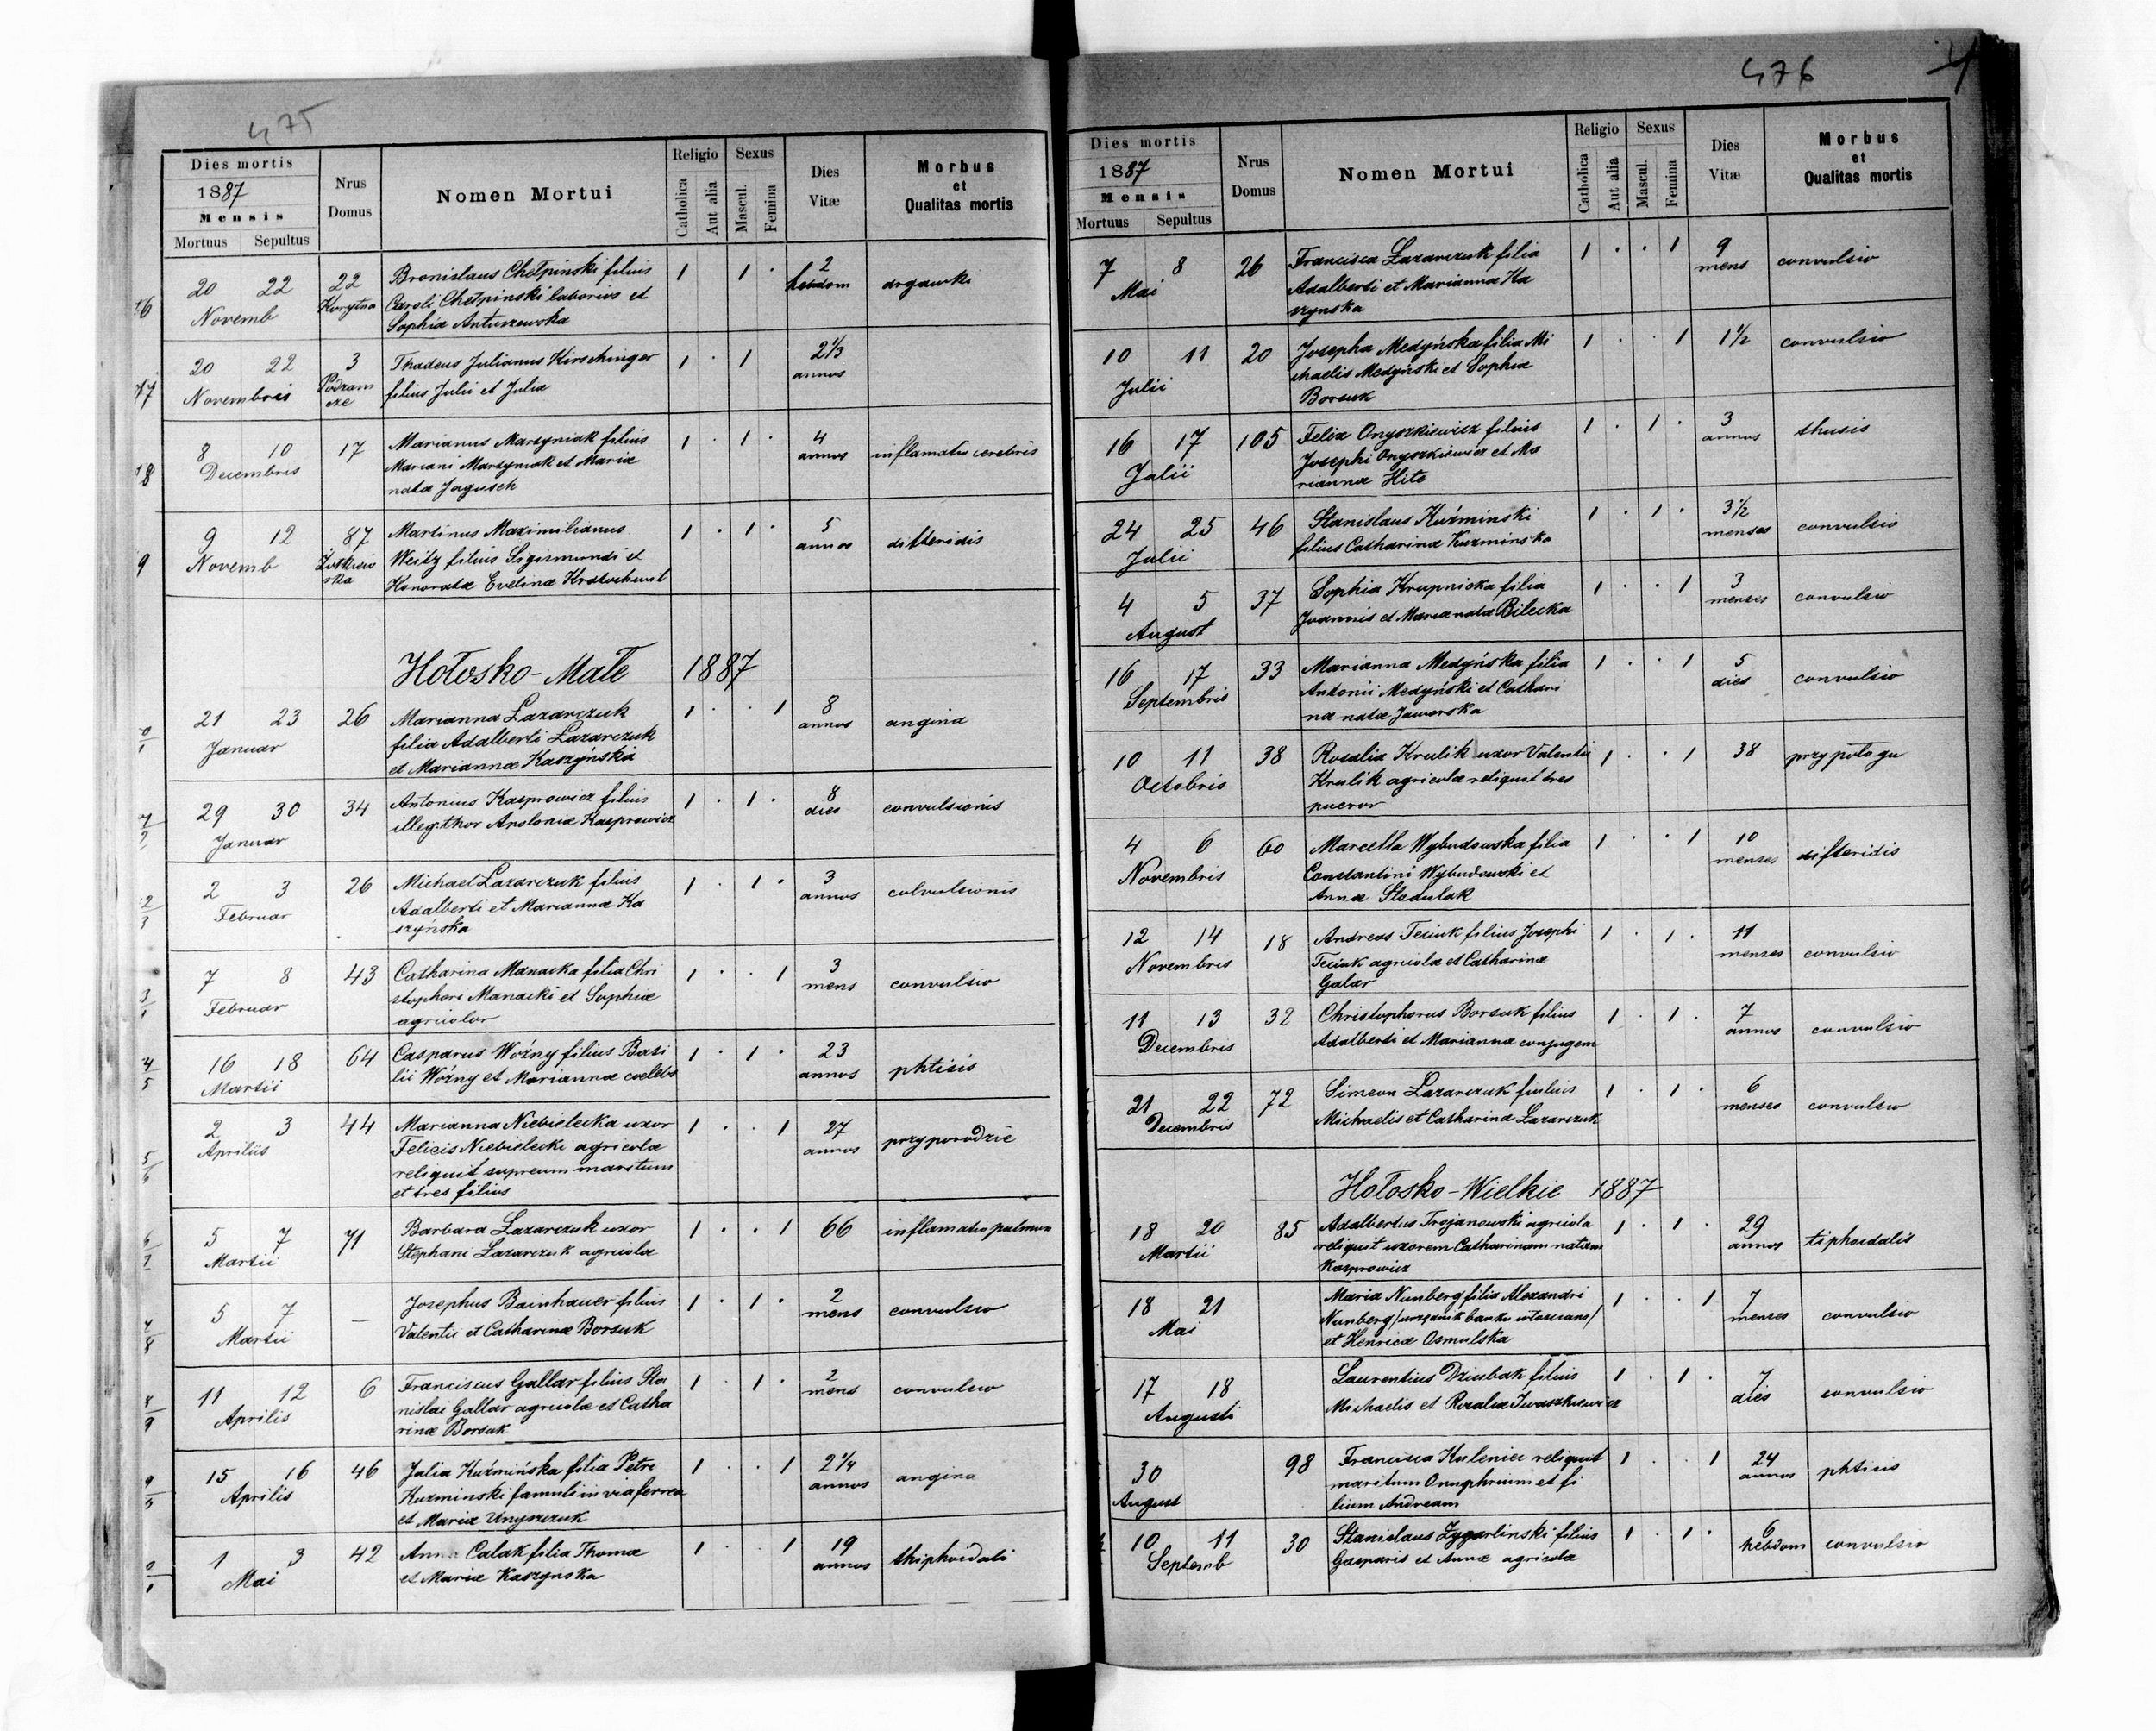 475
Dies mortis
1887
Mensis
Mortuus Sepultus
Nrus
Domus
Nomen Mortui
Religio
Catholica
Aut alia
Sexus
Mascul.
Femina
Dies
Vitæ
Morbus
et
Qualitas mortis
20 22 22 Bronislaus Chełpinski filius 1 1 . 2 drgawki
Novemb Caroli Chełpinski laborius et hebdom
Sophia Antuszewska
20 22 3 Thadeus Julianus Hirschinger 1 . 1 2 1/3
Novembris Podzam filius Julii et Juliæ annos
cze
8 10 17 Marianus Marsyniak filius 1 . 1 . 4 inflamatio cerebris
Decembris Mariani Marsyniak et Mariæ annos
natæ Jagusch
9 12 87 Martinus Maximilianus 1 . 1 . 5 difteridis
Novemb Żołkiew Weitz filius Sigismundi et annos
ska Honoratæ Evelinæ
Hołosko-Małe 1887
21 23 26 Marianna Lazarczuk 1 . . 1 8 angina
Januar filia Adalberti Lazarczuk annos
et Mariannæ Kaszyńska
29 30 34 Antonius Kasprowicz filius 1 . 1 . 8 convulsionis
Januar illeg. thor Apoloniæ Kasprowicz dies
2 3 26 Michael Lazarczuk filius 1 . 1 . 3 culvulsionis
Februar Adalberti et Mariannæ Ka annos
szyńska
7 8 43 Catharina Manacka filia Chri 1 . . 1 3 convulsio
Februar stophori Manacki et Sophiæ mens
agricolor
16 18 64 Casparus Woźny filius Basi 1 . 1 . 23 phtisis
Martii lii Woźny et Mariannæ coelebs annos
2 3 44 Marianna Niebielecka uxor 1 . . 1 27 przy porodzie
Apriliis Felicis Niebielecki agricolæ annos
reliquit supreum maritum
et tres filius
5 7 71 Barbara Lazarczuk uxor 1 . . 1 66 inflamatio pulmon
Martii Stephani Lazarczuk agricolæ
5 7 — Josephus Bainhauer filius 1 . 1 . 2 convulsio
Martii Valentii et Catharinæ Borsuk mens
11 12 6 Franciscus Gallar filius Sta 1 . 1 . 2 convulsio
Aprilis nislai Gallar agricolæ et Catha mens
rinæ Borsuk
15 16 46 Julia Kuźmińska filia Petri 1 . . 1 2 1/4 angina
Aprilis Kuzminski famuli in via ferrea annos
et Mariæ Unyszczuk
1 3 42 Anna Calak filia Thomæ 1 . . 1 19 thiphoidali
Mai et Mariæ Kaszynska annos
476
Dies mortis
1887
Mensis
Mortuus Sepultus
Nrus
Domus
Nomen Mortui
Religio
Catholica
Aut alia
Sexus
Mascul.
Femina
Dies
Vitæ
Morbus
et
Qualitas mortis
7 8 26 Francisca Lazarczuk filia 1 . . 1 9 convulsio
Mai Adalberti et Mariannæ Ka mens
szynska
10 11 20 Josepha Medyńska filia Mi 1 . . 1 1 1/2 convulsio
Julii chaelis Medyński et Sophiæ
Borsuk
16 17 105 Felix Onyszkiewicz filius 1 . 1 . 3 thusis
Julii Josephi Onyszkiewicz et Ma annos
riannæ Hito
24 25 46 Stanislaus Kuźminski 1 . 1 . 3 1/2 convulsio
Julii filius Catharinæ Kuzminska menses
4 5 37 Sophia Krupnicka filia 1 . . 1 3 convulsio
August Joannis et Mariæ natæ Bilecka menses
16 17 33 Marianna Medyńska filia 1 . . 1 5 convulsio
Septembris Antonii Medyński et Cathari dies
næ natæ Jaworska
10 11 38 Rosalia Krulik uxor Valentii 1 . . 1 38 przy połogu
Octobris Krulik agricolæ reliquit tres
pueror
4 6 60 Marcella Wybudowska filia 1 . . 1 10 difteridis
Novembris Constantini Wybudowski et menses
Annæ Stodulak
12 14 18 Andreas Teciuk filius Josephi 1 . 1 . 11 convulsio
Novembris Teciuk agricolæ et Catharinæ menses
Galar
11 13 32 Christophorus Borsuk filius 1 . 1 . 7 convulsio
Decembris Adalberti et Marianna conjugem annos
21 22 72 Simeon Lazarczuk 1 . 1 . 6 convulsio
Decembris Michaelis et Catharina Lazarczuk menses
Hołosko-Wielkie 1887
18 20 85 Adalbertus Trojanowski agricola 1 . 1 . 29 tiphoidalis
Martii reliquit uxorem Catharinam natam annos
Kasprowicz
18 21 Maria Nunberg filia Alexandri 1 . . 1 7 convulsio
Mai Nunberg /urzędnik banku włoscians/ menses
et Henricæ Osmulska
17 18 Laurentius Dziubak filius 1 . 1 . 7 convulsio
Augusti Michaelis et Rozaliæ Iwaszkiewicz dies
30 98 Francisca Kuleniec reliquit 1 . . 1 24 phtisis
August maritum Onuphrium et fi annos
lium Andream
10 11 30 Stanislaus Zygarlinski filius 1 . 1 . 6 convulsio
Septemb Gasparis et Annæ agricolæ hebdom